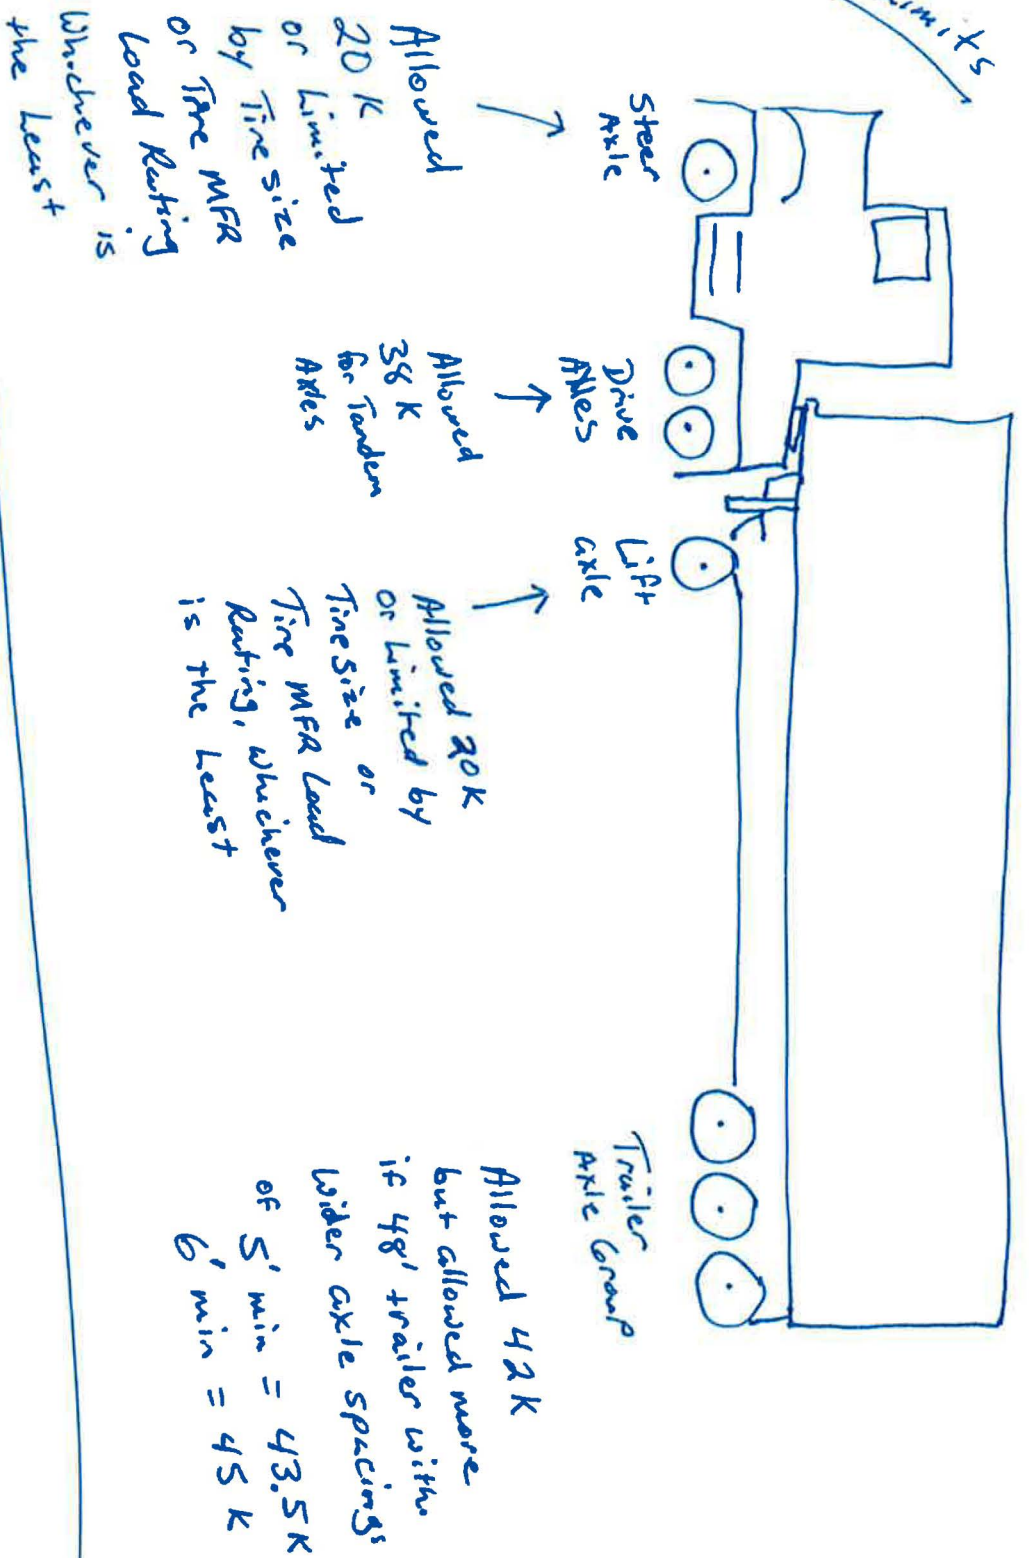 Limits
Steer
Axle
Allowed
20 K
or Limited
by Tire size
or Tire MFR
Load Rating
Whichever is
the Least
Drive
Axles
Allowed
38 K
for Tandem
Axles
Lift
axle
Allowed 20K
or Limited by
Tire size or
Tire MFR Load
Rating, whichever
is the Least
Trailer
Axle Group
Allowed 42K
but allowed more
if 48' trailer with
Wider axle spacings
of 5' min = 43.5K
6' min = 45 K